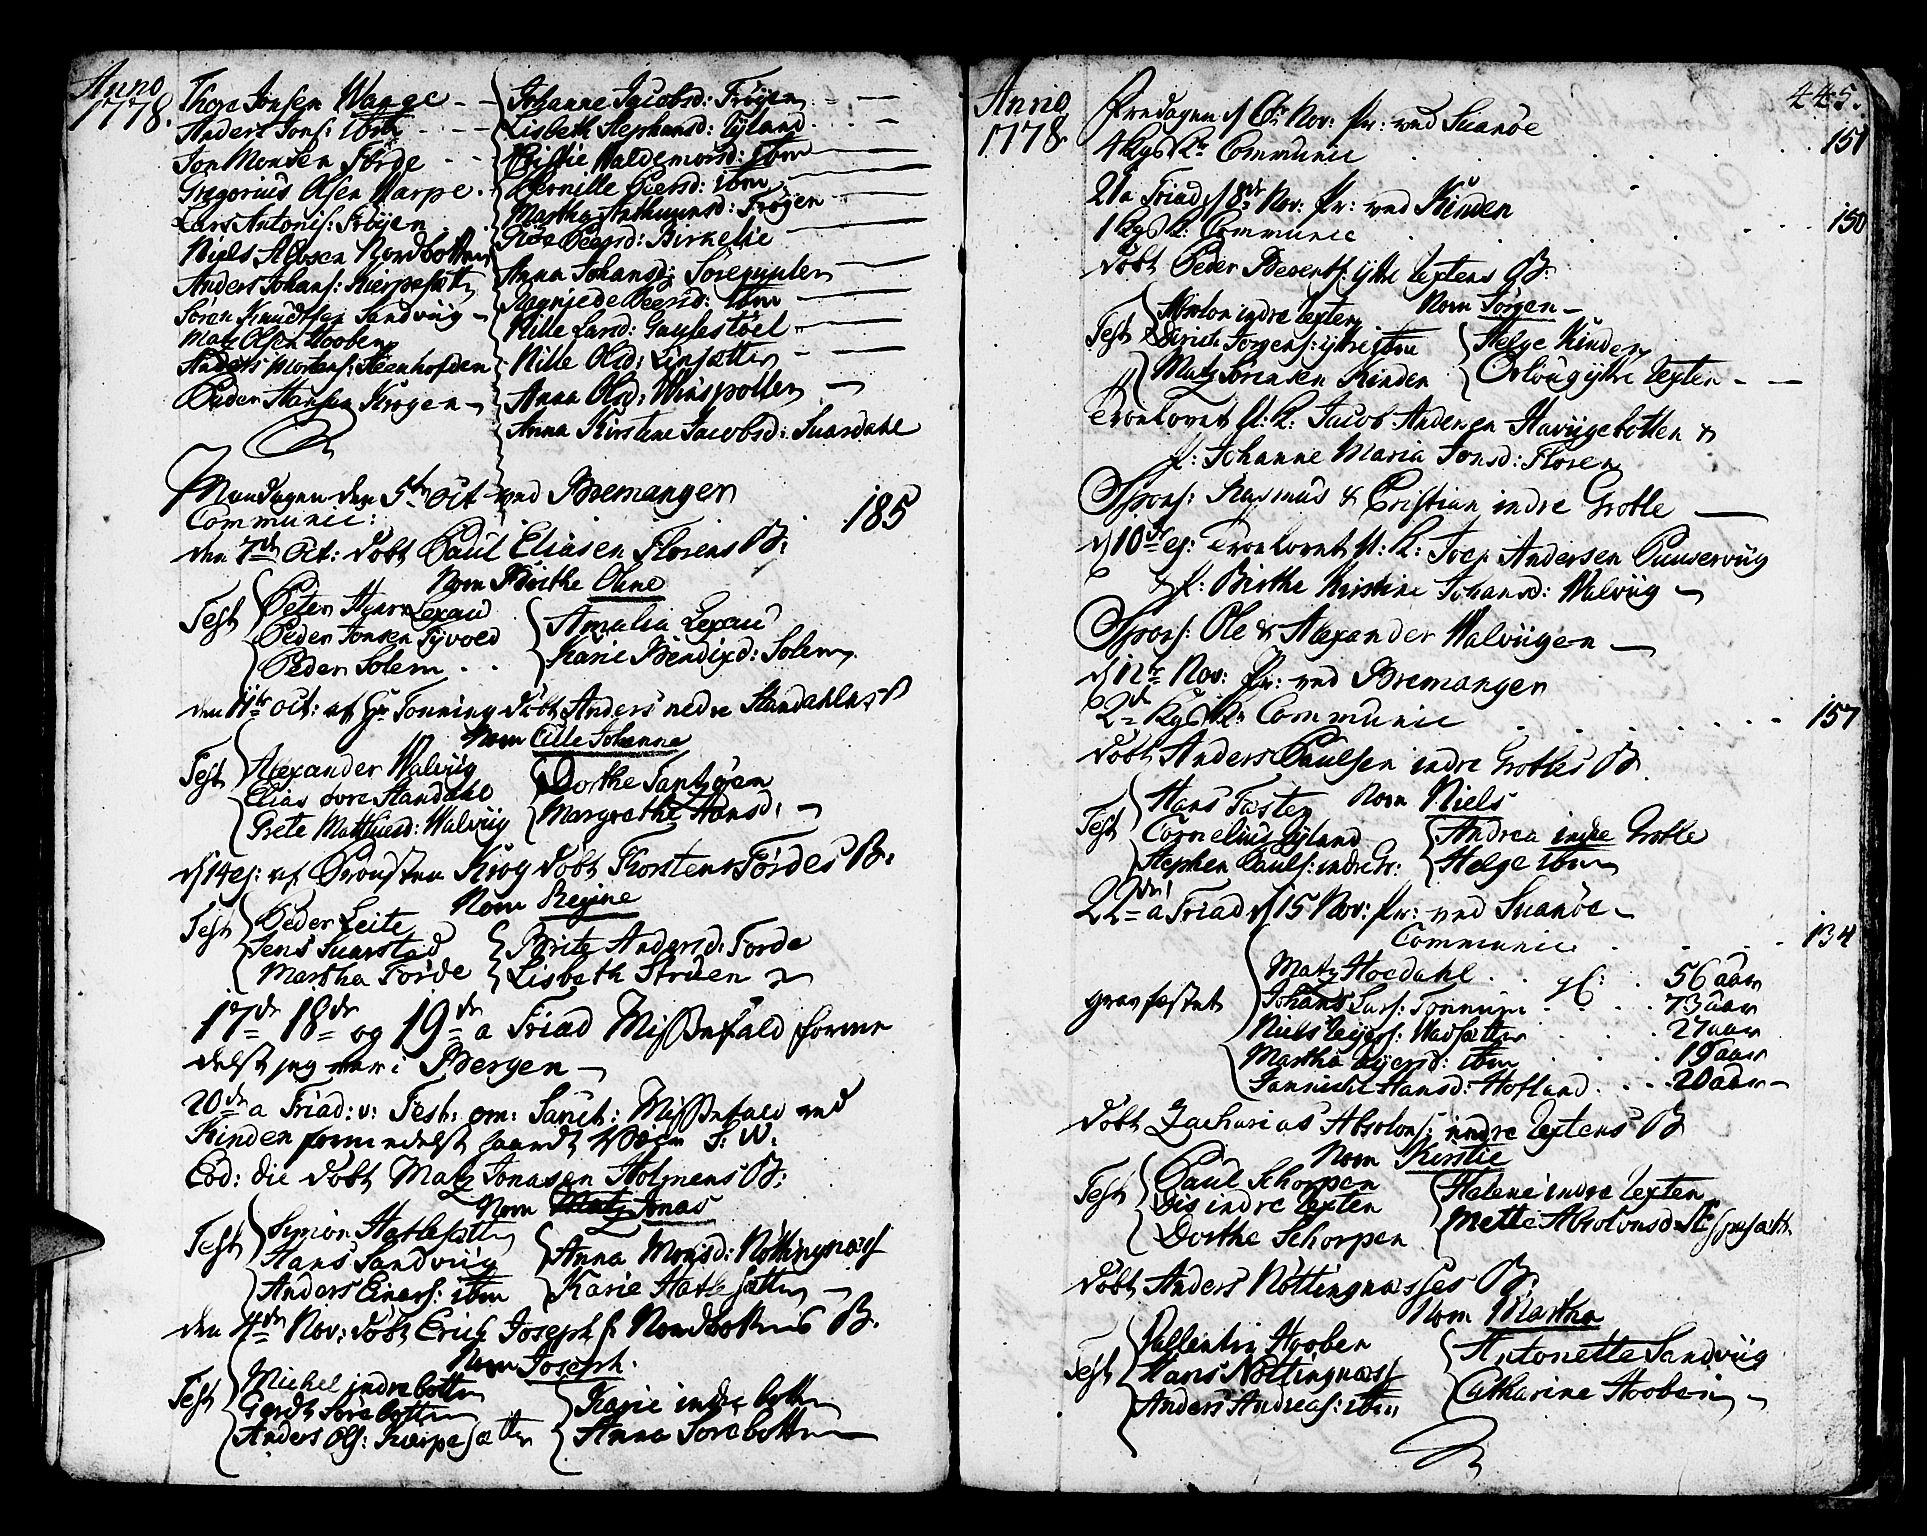 Anno
1778.
Thore Jonsen Wange
Anders Jons: ibm
Jon Monsen Förde
Gregorius Olsen Warpe
Lars Antonis: Fröijen
Niels Nordbotten
Anders Johans: Kierpesætter
Sören Knudtsen Sandviig
Matz Olsen Hooben
Anders Mortens: Steenhofden
Peder Hansen Krogen
Johanne Jacobsd: Fröijen
Lisbeth Stephansd: Tyland
Waldemorsd: ibm
Pernille Peersd: ibm
Martha Anthunsd: Fröijen
Peersd: Birkelie
Anna Johansd: Söregylen
Peersd: ibm
Nille Larsd: Gaulestöel
Nille Olsd: Linsætter
Anna Olsd: Winspollen
Anna Kirstine Jacobsd: Svardahl
Mandagen den 5te Oct ved Bremanger
Communic: 185
den 7de Oct: döbt Paul Eliasen Florens B:
Nom Birthe Oline
Test Peter Lexau
Peder Jonsen Tyvoed
Peder Solem
Amalia Lexau
Karie Bendixd: Solem
den 11te Oct: af Hr Tonning döbt Anders nedre Standahls B
Nom Cille Johanne
Test Alexander Walviig
Elias övre Standahl
Grete Matthiesd: Walviig
Dorthe Santzöen
Margrethe Hansd:
d 14 ej: af Provsten Krog döbt Thorstens Fördes B:
Nom Regine
Test Peder Leite
Jens Svarstad
Martha Förde
Brite Andersd: Förde
Lisbeth Straen
17de 18de og 19de a Triad Missefald forme
delst jeg var i Bergen
20de a Triad: v: Fest: om: Sanct: Missefald ved
Kinden formedelst haardt Weier S: W:
Eod: die döbt Matz Jonasen Holmens B:
Nom Jonas
Test Simon Hatlesætter
Hans Sandviig
Anders Einers: ibm
Anna Monsd: Nöttingnæss
Karie Hatlesætter
den 4de Nov: döbt Erich Josephs: Nordbottens B.
Nom Joseph.
Test Michel indrebotten
Gerdt Sörebotten
Anders Ols: Kierpesætter
Karie indrebotten
Anna Sörebotten
Anno
1778
445.
Fredagen d 6te Nov: Pr: ved Svanöe
4 Communic 151
21 a Triad d 8de Nov: Pr: ved Kinden
1 Communic 150
döbt Peder Berents: ytre Lextens B:
Nom Jörgen
Test Absolon indre Lexten
Dirich Jörgens: ytre ibm
Matz Sörensen Kinden
Helge Kinden
Orloug ytre Lexten
Trolovet K: Jacob Andersen Haviigebotten &
P: Johanne Maria Jonsd: Floren
Spons: Rasmus & Cristian indre Grotle
d 10de ej: Trolovet K: Joen Andersen
& P: Birthe Kirstine Johansd: Walviig
Spons: Ole & Alexander Walviigen
d 12te Nov: Pr: ved Bremanger
2de Communic 157
döbt Anders Paulsen indre Grotles B.
Nom Niels
Test Hans Faste
Cornelius Tyland
Stephen Pauls: indre Gr:
Andrea indre Grotle
Helge ibm
22de a Triad d 15 Nov: Pr: ved Svanöe
Communic 134
gravfæstet Matz Hovdahl 56 aar
Johans Lars: 73 aar
Niels Wadsætter 27 aar
Martha ibm 19 aar
Jannicke Hansd: Hofland 20 aar
döbt Zacharias Absolons: indre Lextens B
Nom Kirstie
Test Paul Schorpen
Gis indre Lexten
Dorthe Schorpen
Helene indre Lexten
Mette Absolonsd: Espesætt
döbt Anders Nöttingnæsses B.
Nom Martha
Test Vallentin Hooben
Hans Nöttingnæss
Anders Andreas: ibm
Antonette Sandviig
Catharine Hooben